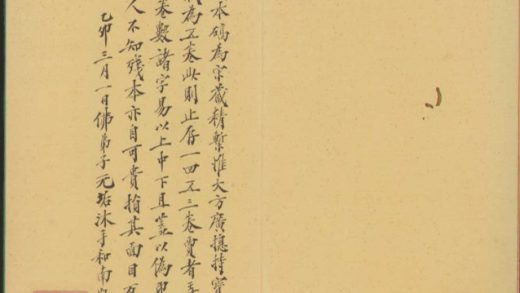 本碻為宋藏精槧推大方廣揔持寶
為五卷此則止存一四五三卷賈者
卷數諸字易以上中下且蓋以偽
人不知殘本亦自可貴揜其面目
乙卯三月一日佛弟子元 沐手和南